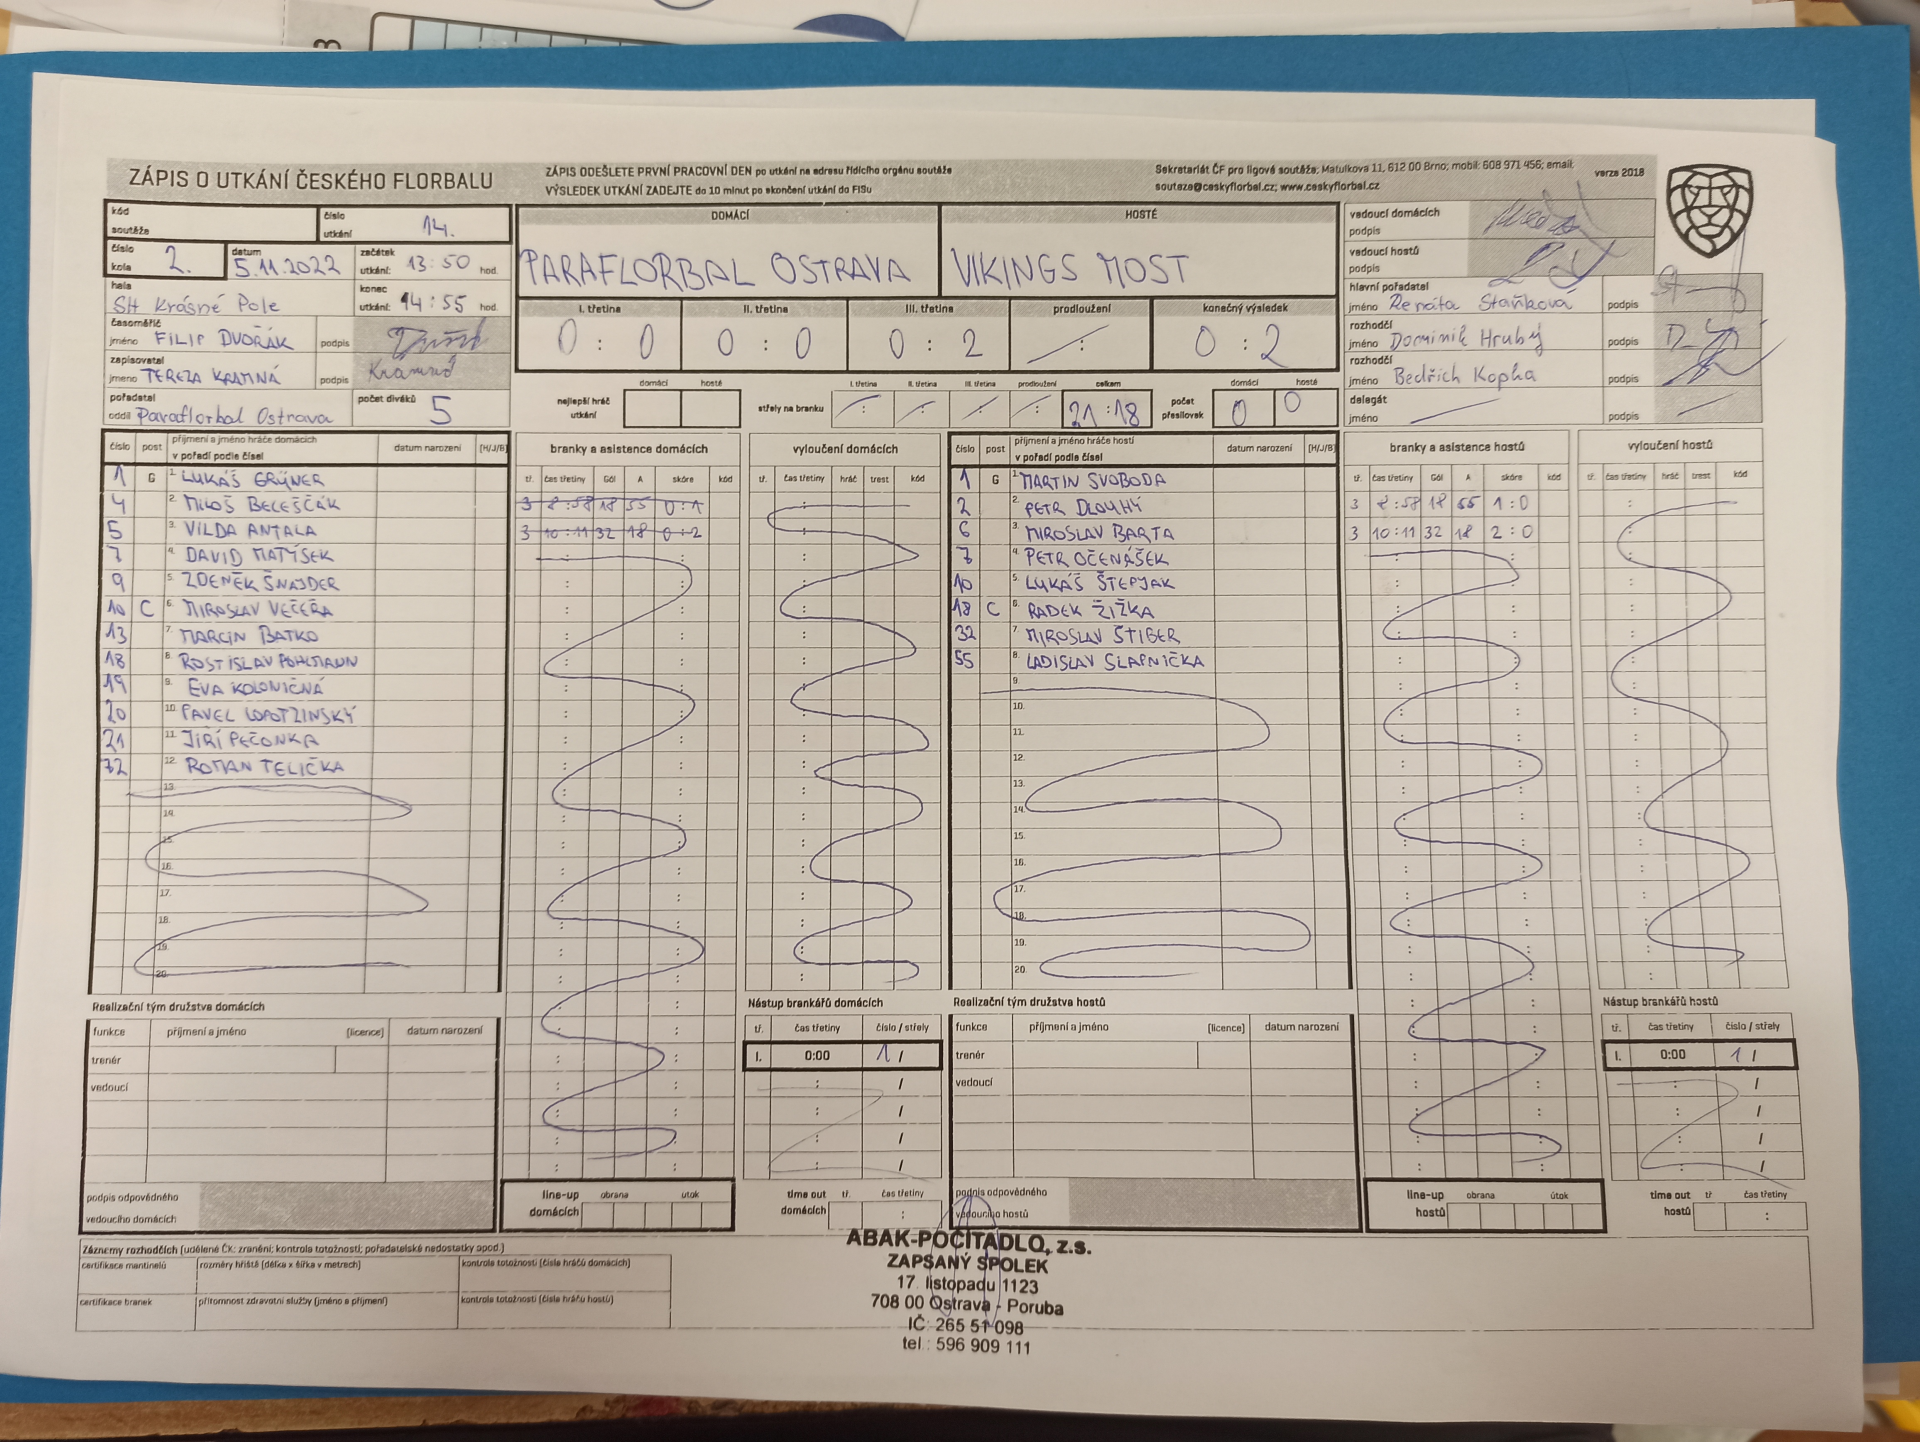 ZÁPIS O UTKÁNÍ ČESKÉHO FLORBALU
ZÁPIS ODEŠLETE PRVNÍ PRACOVNÍ DEN po utkání na adresu řídícího orgánu soutěže
VÝSLEDEK UTKÁNÍ ZADEJTE do 10 minut po skončení utkání do FISu
Sekretariát ČF pro ligové soutěže; Matulkova 11, 612 00 Brno; mobil: 608 971 456; email:
souteze@ceskyflorbal.cz; www.ceskyflorbal.cz
verze 2018
kód soutěže
číslo utkání 14.
číslo kola 2.
datum 5.11.2022
začátek utkání: 13:50 hod.
hala SH Krásné Pole
konec utkání: 14:55 hod.
časoměřič jméno FILIP DVOŘÁK podpis
zapisovatel jméno TEREZA podpis
pořadatel oddíl Paraflorbal Ostrava
počet diváků 5
DOMÁCÍ
PARAFLORBAL OSTRAVA
HOSTÉ
VIKINGS MOST
I. třetina II. třetina III. třetina prodloužení konečný výsledek
0 : 0 0 : 0 0 : 2 : 0 : 2
nejlepší hráč utkání domácí hosté
střely na branku I. třetina II. třetina III. třetina prodloužení celkem
: : : : 21 : 18
počet přesilovek domácí hosté
0 0
vedoucí domácích podpis
vedoucí hostů podpis
hlavní pořadatel jméno Renáta Staňková podpis
rozhodčí jméno Dominik Hrubý podpis
rozhodčí jméno Bedřich Kopka podpis
delegát jméno podpis
číslo post příjmení a jméno hráče domácích v pořadí podle čísel datum narození (H/J/B)
1 G 1. LUKÁŠ GRÜNER
4 2. MILOŠ BELEŠČÁK
5 3. VILDA ANTALA
7 4. DAVID MATÝSEK
9 5. ZDENĚK ŠNAJDER
10 C 6. MIROSLAV VEČEŘA
13 7. MARCIN BATKO
18 8. ROSTISLAV POHLMANN
19 9. EVA KOLONIČNÁ
20 10. PAVEL
21 11. JIŘÍ PEČONKA
32 12. ROMAN TELIČKA
13.
14.
15.
16.
17.
18.
19.
20.
branky a asistence domácích
tř. čas třetiny Gól A skóre kód
3 8:58 18 55 0:1
3 10:11 32 18 0:2
vyloučení domácích
tř. čas třetiny hráč trest kód
číslo post příjmení a jméno hráče hostí v pořadí podle čísel datum narození (H/J/B)
1 G 1. MARTIN SVOBODA
2 2. PETR DLOUHÝ
6 3. MIROSLAV BARTA
7 4. PETR OČENÁŠEK
10 5. LUKÁŠ ŠTEPJAK
18 C 6. RADEK ŽIŽKA
32 7. MIROSLAV ŠTIBER
55 8. LADISLAV SLAPNIČKA
9.
10.
11.
12.
13.
14.
15.
16.
17.
18.
19.
20.
branky a asistence hostů
tř. čas třetiny Gól A skóre kód
3 8:58 18 55 1:0
3 10:11 32 18 2:0
vyloučení hostů
tř. čas třetiny hráč trest kód
Realizační tým družstva domácích
funkce příjmení a jméno (licence) datum narození
trenér
vedoucí
podpis odpovědného
vedoucího domácích
line-up domácích obrana útok
Nástup brankářů domácích
tř. čas třetiny číslo / střely
I. 0:00 1 /
time out domácích tř. čas třetiny
Realizační tým družstva hostů
funkce příjmení a jméno (licence) datum narození
trenér
vedoucí
podpis odpovědného
vedoucího hostů
line-up hostů obrana útok
Nástup brankářů hostů
tř. čas třetiny číslo / střely
I. 0:00 1 /
time out hostů tř. čas třetiny
Záznamy rozhodčích (udělené ČK; zranění; kontrola totožnosti; pořadatelské nedostatky apod.)
certifikace mantinelů rozměry hřiště (délka x šířka v metrech) kontrola totožnosti (čísla hráčů domácích)
certifikace branek přítomnost zdravotní služby (jméno a příjmení) kontrola totožnosti (čísla hráčů hostů)
ABAK-POČÍTADLO, z.s.
ZAPSANÝ SPOLEK
17. listopadu 1123
708 00 Ostrava - Poruba
IČ: 265 51 098
tel.: 596 909 111